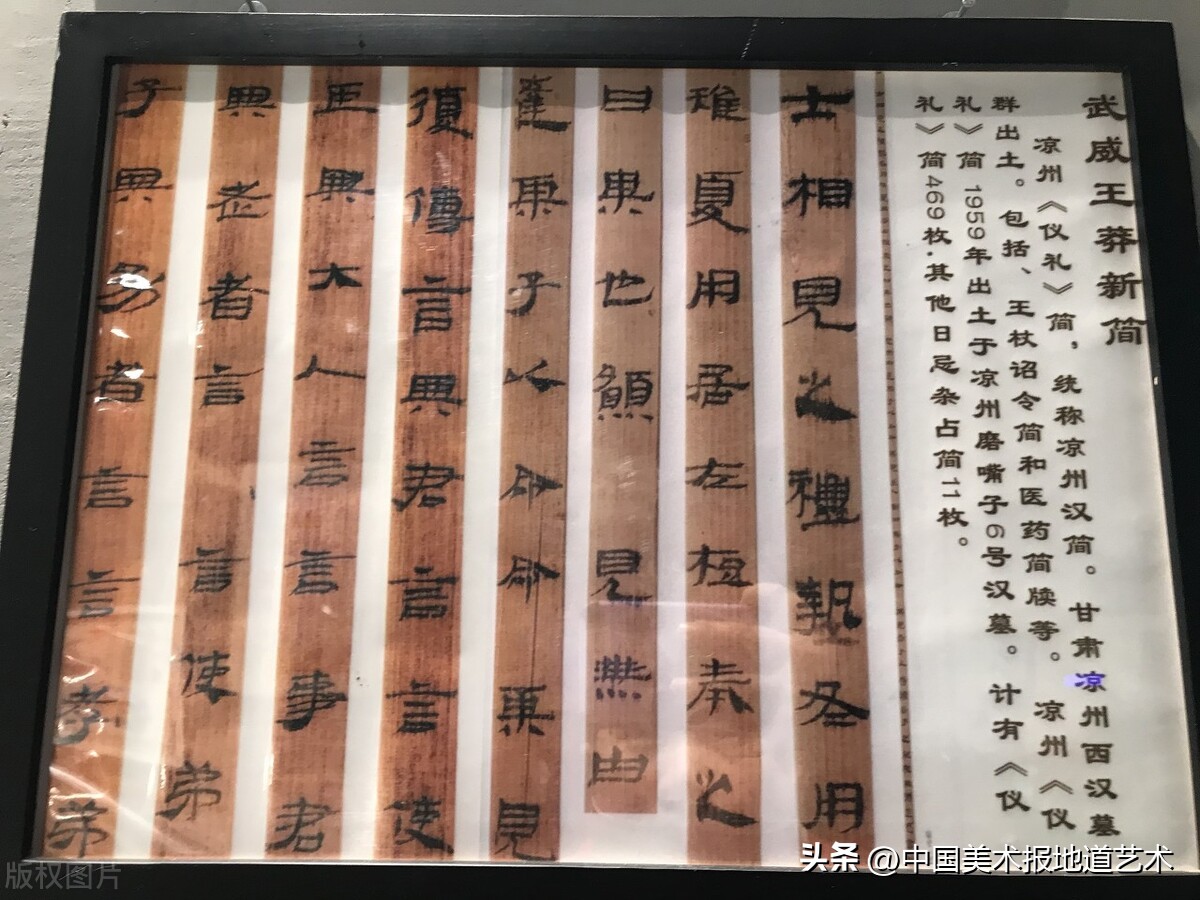 武威王莽新简
凉州《仪礼》简，统称凉州汉简。甘肃凉州西汉墓
群出土。包括、王杖诏令简和医药简牍等。凉州《仪
礼》简1959年出土于凉州磨嘴子6号汉墓。计有《仪
礼》简469枚.其他日忌杂占简11枚。
士相見之禮執冬用
雉夏用居左奉之
曰某也願見無由
達某子以命命某見
復傳言與君言言使
臣與大人言言事君
與老者言言使弟
子與幼者言言孝弟
头条 @中国美术报地道艺术
版权图片